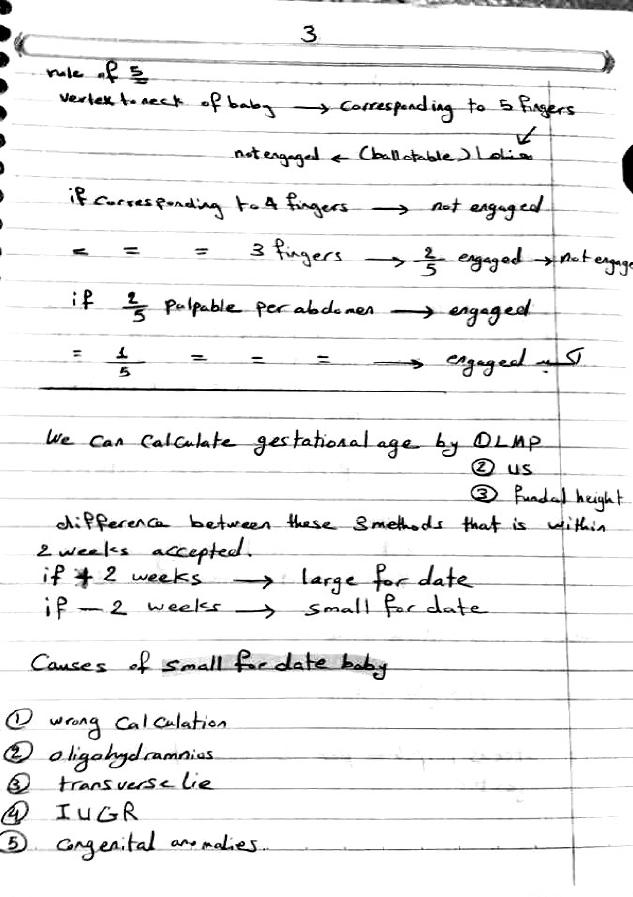 3
rule of 5
vertex to neck of baby → corresponding to 5 fingers
not engaged ← (ballotable)
if corresponding to 4 fingers → not engaged
= = = 3 fingers → 2/5 engaged → not engage
if 2/5 palpable per abdomen → engaged
= 1/5 = = = → engaged
We can calculate gestational age by ① LMP
② US
③ fundal height
difference between these 3 methods that is within
2 weeks accepted.
if + 2 weeks → large for date
if - 2 weeks → small for date
Causes of small for date baby
① wrong calculation
② oligohydramnios
③ transverse lie
④ IUGR
⑤ congenital anomalies..